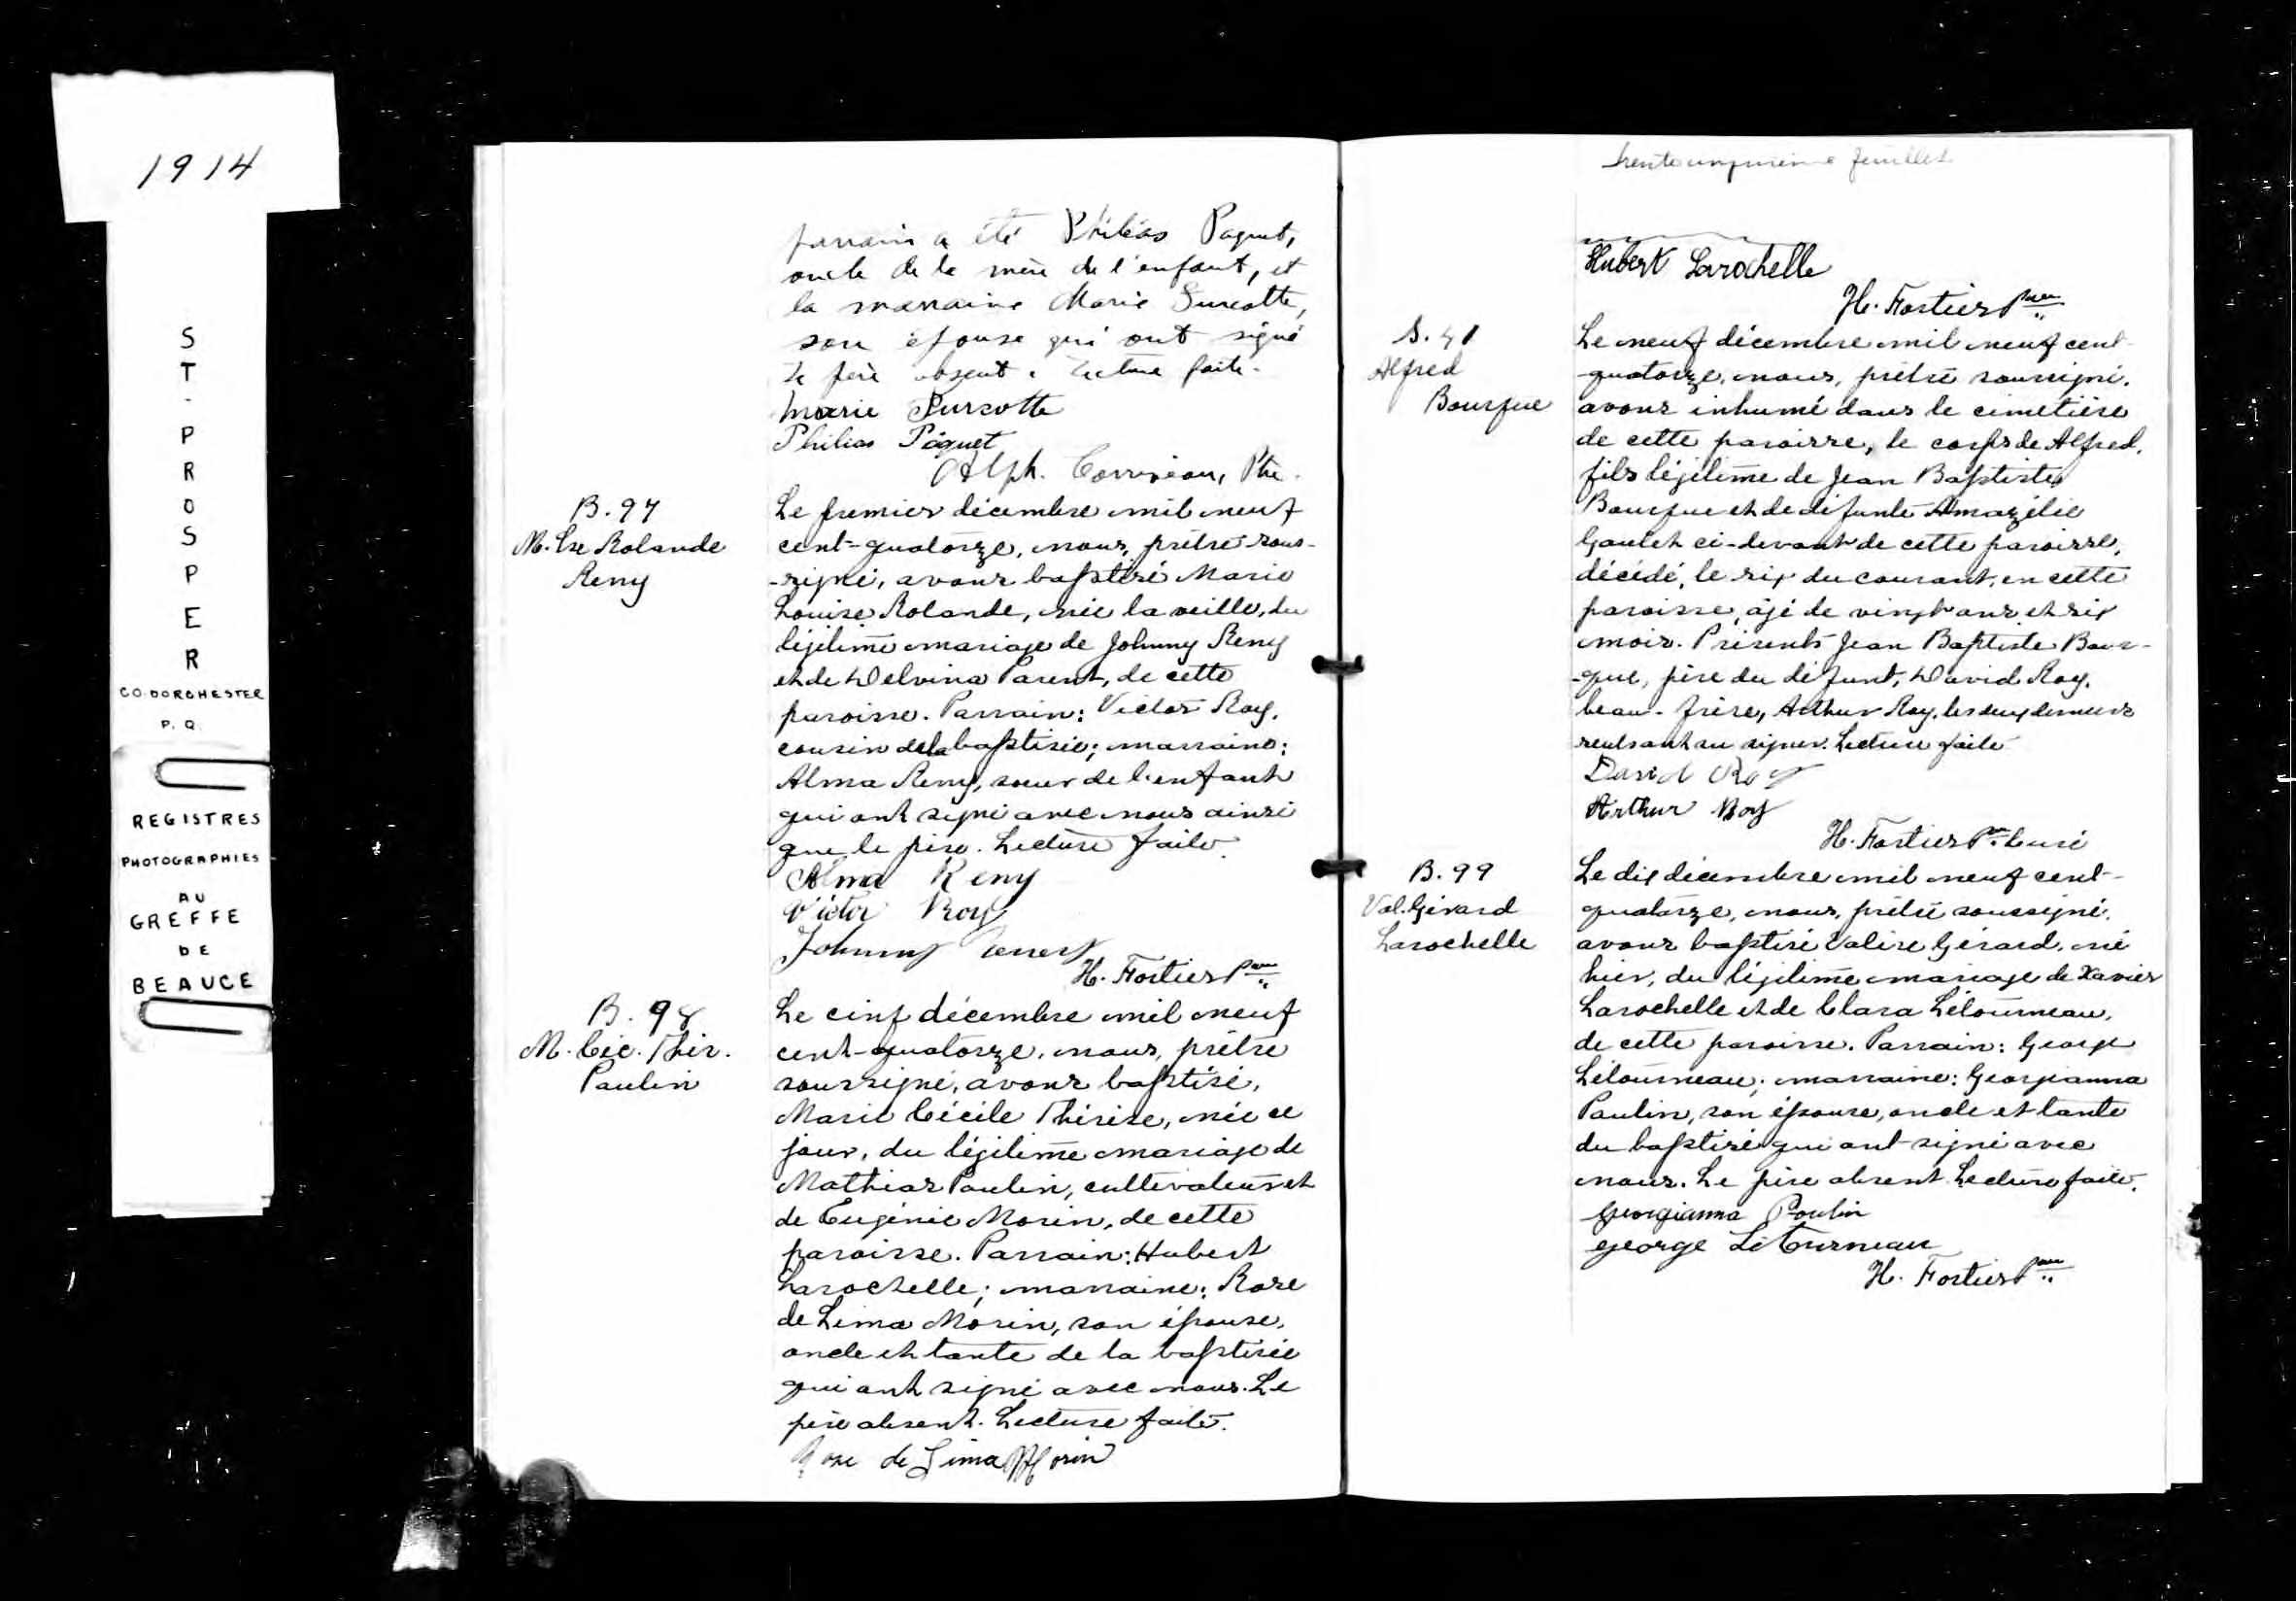 1914
ST-PROSPER
CO. DORCHESTER
P. Q.
REGISTRES
PHOTOGRAPHIES
AU
GREFFE
DE
BEAUCE
parrain a été Philéas Paquet,
oncle de la mère de l'enfant, et
la marraine Marie Turcotte,
son épouse qui ont signé
le père absent. Lecture faite.
Marie Turcotte
Philias Pâquet
Alph. Corriveau, Ptre.
B. 97
M. Lse Rolande
Remy
Le premier décembre mil neuf
cent-quatorze, nous, prêtre sous-
-signé, avons baptisé Marie
Louise Rolande, née la veille, du
légitime mariage de Johnny Remy
et de Delvina Parent, de cette
paroisse. Parrain: Victor Roy,
cousin de la baptisée; marraine:
Alma Remy, soeur de l'enfant
qui ont signé avec nous ainsi
que le père. Lecture faite.
Alma Remy
Victor Roy
Johnny
H. Fortier Ptre
B. 98
M. Céc. Thér.
Poulin
Le cinq décembre mil neuf
cent-quatorze, nous, prêtre
soussigné, avons baptisé,
Marie Cécile Thérèse, née ce
jour, du légitime mariage de
Mathias Poulin, cultivateur et
de Eugénie Morin, de cette
paroisse. Parrain: Hubert
Larochelle; marraine: Rose
de Lima Morin, son épouse,
oncle et tante de la baptisée
qui ont signé avec nous. Le
père absent. Lecture faite.
Rose de Lima Morin
trente unième feuillet
Hubert Larochelle
H. Fortier Ptre
S. 41
Alfred
Bourque
Le neuf décembre mil neuf cent-
-quatorze, nous, prêtre soussigné,
avons inhumé dans le cimetière
de cette paroisse, le corps de Alfred,
fils légitime de Jean Baptiste
Bourque et de défunte Amazélie
Goulet ci-devant de cette paroisse,
décédé, le six du courant, en cette
paroisse, âgé de vingt ans et six
mois. Présents Jean Baptiste Bour-
-que, père du défunt, David Roy,
beau-frère, Arthur Roy, les deux derniers
seuls ont su signer. Lecture faite
David Roy
Arthur Roy
H. Fortier Ptre Curé
B. 99
Val. Gérard
Larochelle
Le dix décembre mil neuf cent-
quatorze, nous, prêtre soussigné,
avons baptisé Valère Gérard, né
hier, du légitime mariage de Xavier
Larochelle et de Clara Létourneau,
de cette paroisse. Parrain: George
Létourneau; marraine: Georgianna
Poulin, son épouse, oncle et tante
du baptisé qui ont signé avec
nous. Le père absent. Lecture faite.
Georgianna Poulin
George Létourneau
H. Fortier Ptre